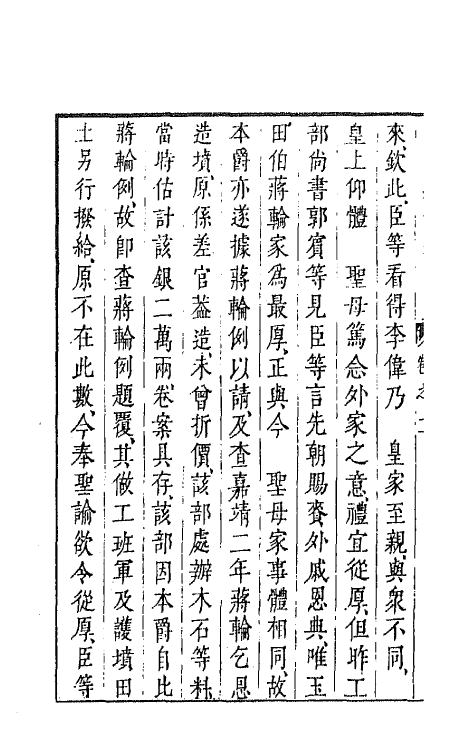 來欽此、臣等看得李偉乃　皇家至親、與衆不同、
皇上仰體　聖母篤念外家之意、禮宜從厚、但昨工
部尚書郭賓等見臣等言先朝賜賚外戚恩典、唯玉
田伯蔣輪家爲最厚、正與今　聖母家事體相同、故
本爵亦遂據蔣輪例以請、及查嘉靖二年蔣輪乞恩
造墳、原係差官葢造、未曾折價、該部處辦木石等料、
當時估計該銀二萬兩、卷案具存、該部因本爵自比
蔣輪例、故卽查蔣輪例題覆、其做工班軍及護墳田
土另行撥給、原不在此數、今奉聖諭欲令從厚、臣等